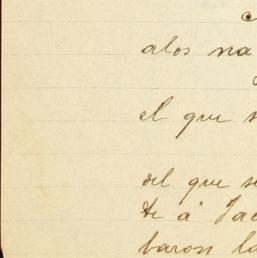 alos na
el que
del que se
te á Jac
baron la